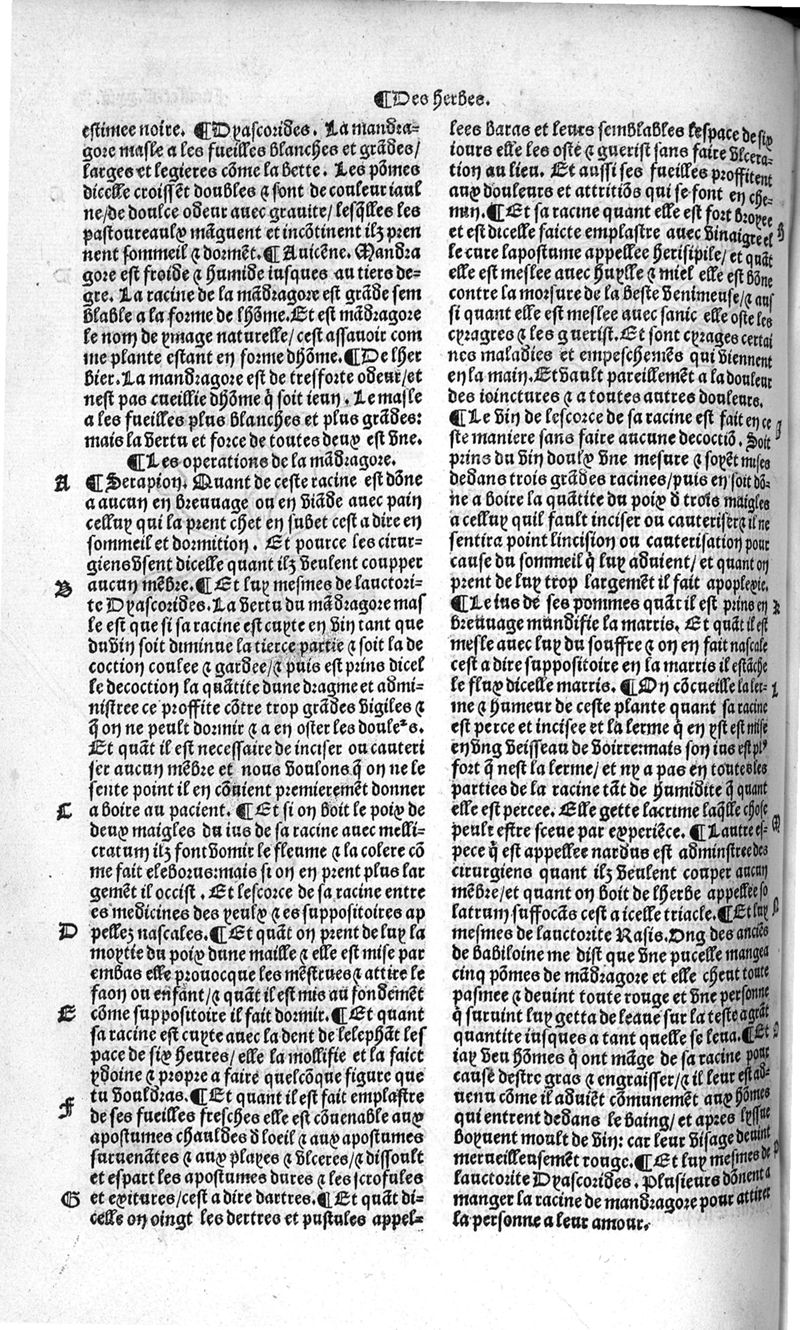 ¶Des herbes.
estimee noire. ¶Dyascorides. La mandra-
gore masle a les fueilles blanches et grãdes/
larges et legieres cõme la bette. Les põmes
dicelle croissẽt doubles ⁊ sont de couleur iaul
ne/de doulce odeur avec gravite/ lesq̃lles les
pastoureaulx mãguent et incõtinent ilz pren
nent sommeil ⁊ dormẽt. ¶Avicẽne. Mandra
gore est froide ⁊ humide iusques au tiers de-
gre. La racine de la mãdragore est grãde sem
blable a la forme de lhõme. Et est mãdragore
le nom de ymage naturelle/ cest assavoir com
me plante estant en forme dhõme. ¶De lher
bier. La mandragore est de tresforte odeur/et
nest pas cueillie dhõme q̃ soit ieun. Le masle
a les fueilles plus blanches et plus grãdes:
mais la vertu et force de toutes deux est vne.
¶Les operations de la mãdragore.
A ¶Serapion. Quant de ceste racine est dõne
a aucun en breuuage ou en viãde avec pain
celluy qui la prent chet en subet cest a dire en
sommeil et dormition. Et pource les cirur-
giens vsent dicelle quant ilz veulent coupper
B aucun mẽbre. ¶Et luy mesmes de lauctori-
te Dyascorides. La vertu du mãdragore mas
le est que si sa racine est cuyte en vin tant que
du vin soit diminue la tierce partie ⁊ soit la de
coction coulee ⁊ gardee/⁊ puis est prins dicel
le decoction la quãtite dune dragme et admi-
nistree ce proffite cõtre trop grãdes vigiles ⁊
q̃ on ne peult dormir ⁊ a en oster les douleˀs.
Et quãt il est necessaire de inciser ou cauteri
ser aucun mẽbre et nous voulons q̃ on ne le
sente point il en cõvient premierement donner
C a boire au pacient. ¶Et si on boit le poix de
deux maigles du ius de sa racine avec melli-
cratum ilz font vomir le fleume ⁊ la colere cõ
me fait eleborus: mais si on en prent plus lar
gemẽt il occist. Et lescorce de sa racine entre
es medicines des yeulx ⁊ es suppositoires ap
D pellez nascales. ¶Et quãt on prent de luy la
moytie du poix dune maille ⁊ elle est mise par
embas elle provocque les mẽstrues ⁊ attire le
faon ou enfant/⁊ quãt il est mis au fondemẽt
E cõme suppositoire il fait dormir. ¶Et quant
sa racine est cuyte avec la dent de lelephãt les
pace de six heures/ elle la mollifie et la faict
ydoine ⁊ propre a faire quelcõque figure que
tu vouldras. ¶Et quant il est fait emplastre
F de ses fueilles fresches elle est cõvenable aux
apostumes chauldes d loeil ⁊ aux apostumes
survenãtes ⁊ aux playes ⁊ vlceres/⁊ dissoult
et espart les apostumes dures ⁊ les scrofules
G et exitures/cest a dire dartres. ¶Et quãt di-
celle on oingt les dertres et pustules appel-
lees baras et leurs semblables lespace de six
iours elle les oste ⁊ guerist sans faire vlcera-
tion au lieu. Et aussi ses fueilles proffitent
aux douleurs et attritiõs qui se font en che-
min. ¶Et sa racine quant elle est fort broyee
et est dicelle faicte emplastre avec vinaigre el
le cure lapostume appellee herisipile/ et quãt
elle est meslee avec huylle ⁊ miel elle est bõne
contre la morsure de la beste venimeuse/⁊ aus
si quant elle est meslee avec sanic elle oste les
cyragres ⁊ les guerist. Et sont cyrages certai
nes maladies et empeschemẽs qui viennent
en la main. Et vault pareillemẽt a la douleur
des ioinctures ⁊ a toutes autres douleurs.
¶Le vin de lescorce de sa racine est fait en ce
ste maniere sans faire aucune decoctiõ. Soit
prins du vin doulx vne mesure ⁊ soyẽt mises
dedans trois grãdes racines/puis en soit dõ-
ne a boire la quãtite du poix d trois maigles
a celluy quil fault inciser ou cauteriser⁊ il ne
sentira point lincision ou cauterisation pour
cause du sommeil q̃ luy advient/ et quant on
prent de luy trop largemẽt il fait apoplexie.
¶Le ius de ses pommes quãt il est prins en
breuuage mundifie la marris. Et quãt il est
mesle avec luy du souffre ⁊ on en fait nascale
cest a dire suppositoire en la marris il estãche
le flux dicelle marris. ¶On cõcueille la ler-
me ⁊ humeur de ceste plante quant sa racine
est perce et incisee et la lerme q̃ en yst est mise
en vng veisseau de voirre: mais son ius est plꝰ
fort q̃ nest la lerme/ et ny a pas en toutes les
parties de la racine tãt de humidite q̃ quant
elle est percee. Elle gette lacrime laq̃lle chose
peult estre sceue par experiẽce. ¶Lautre es-
pece q̃ est appellee nardus est adminstree des
cirurgiens quant ilz veulent couper aucun
mẽbre/et quant on boit de lherbe appellee so
latrum suffocãs cest a icelle triacle. ¶Et luy
mesmes de lauctorite Rasis. Ung des anciẽs
de babiloine me dist que vne pucelle mangea
cinq põmes de mãdragore et elle cheut toute
pasmee ⁊ devint toute rouge et vne personne
q̃ survint luy getta de leaue sur la teste a grãt
quantite iusques a tant quelle se leva. ¶Et
iay veu hõmes q̃ ont mãge de sa racine pour
cause destre gras ⁊ engraisser/⁊ il leur est ad-
venu cõme il adviẽt cõmunemẽt aux hõmes
qui entrent dedans le baing/ et apres lyssue
boyuent moult de vin: car leur visage devint
merveilleusemẽt rouge. ¶Et luy mesmes de
lauctorite Dyascorides. Plusieurs dõnent a
manger la racine de mandragore pour attirer
la personne a leur amour.